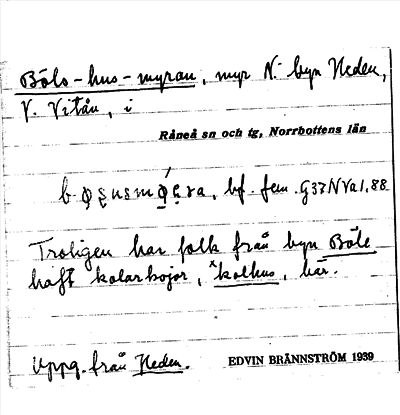 Böls-hus-myran, myr N. byn Heden,
V. Vitån, i
Råneå sn och tg, Norrbottens län
bf. fem. G37NVa1.88
Troligen har folk från byn Böle
haft kolarkojor, ˣkolhus, här.
Uppg. från Heden. EDVIN BRÄNNSTRÖM 1939